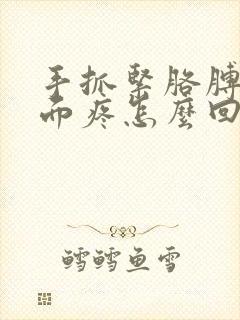 手抓緊胳膊
而疼怎麼回
鱈鱈鱼雪